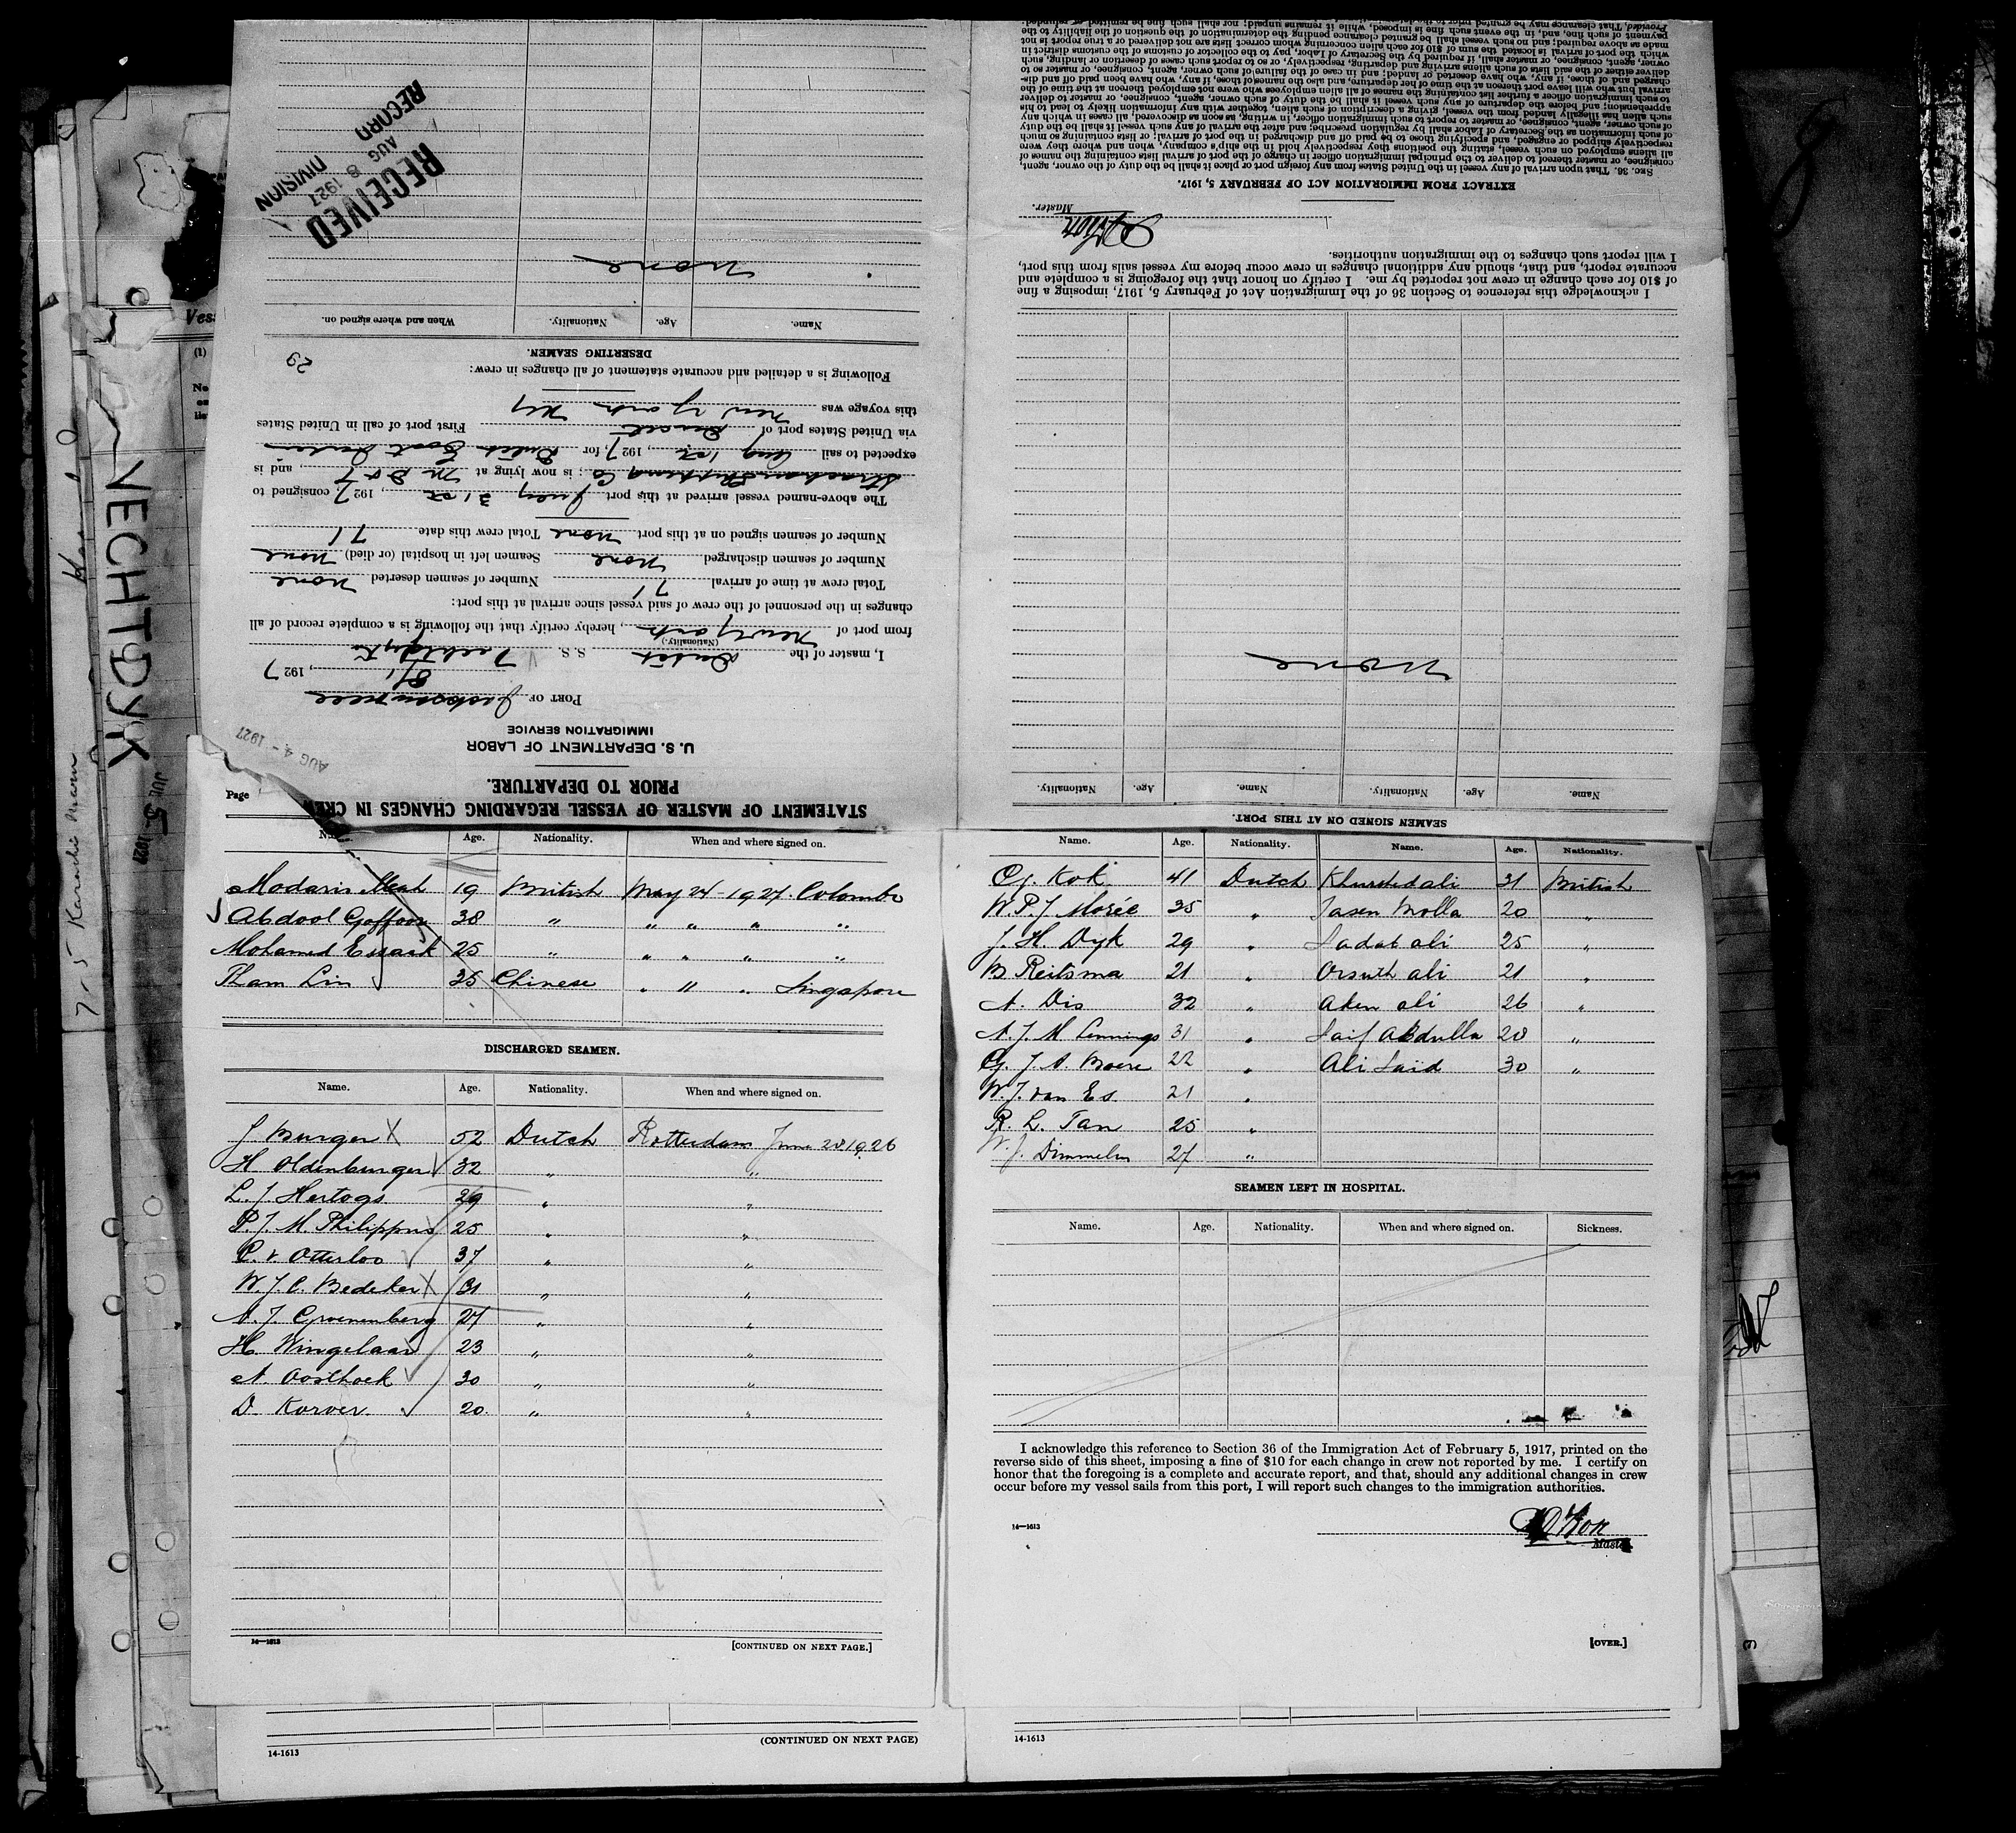 VECHTDYK
JUL 5 1927
7-5 Karachi Maru
Vess
(1)
No
STATEMENT OF MASTER OF VESSEL REGARDING CHANGES IN CREW
PRIOR TO DEPARTURE.
U. S. DEPARTMENT OF LABOR
IMMIGRATION SERVICE
AUG 4 - 1927
PORT OF Jacksonville
8/1, 1927
I, master of the Dutch S. S. Vechtdyk
(Nationality.)
from port of New York, hereby certify that the following is a complete record of all
changes in the personnel of the crew of said vessel since arrival at this port:
Total crew at time of arrival 71 Number of seamen deserted none
Number of seamen discharged none Seamen left in hospital (or died) none
Number of seamen signed on at this port none Total crew this date 71
The above-named vessel arrived at this port July 31st, 1927, consigned to
Strachan Shipping Co; is now lying at M D & T, and is
expected to sail Aug 1st, 1927, for Dutch East Indies
via United States port of Direct First port of call in United States
this voyage was New York NY
Following is a detailed and accurate statement of all changes in crew:
29
DESERTING SEAMEN.
Name. Age. Nationality. When and where signed on.
None
RECEIVED
AUG 8 1927
RECORD DIVISION
SEAMEN SIGNED ON AT THIS PORT.
Name. Age. Nationality. Name. Age. Nationality.
None
I acknowledge this reference to Section 36 of the Immigration Act of February 5, 1917, imposing a fine
of $10 for each change in crew not reported by me. I certify on honor that the foregoing is a complete and
accurate report, and that, should any additional changes in crew occur before my vessel sails from this port,
I will report such changes to the immigration authorities.
Master.
EXTRACT FROM IMMIGRATION ACT OF FEBRUARY 5, 1917.
SEC. 36. That upon arrival of any vessel in the United States from any foreign port or place it shall be the duty of the owner, agent,
consignee, or master thereof to deliver to the principal immigration officer in charge of the port of arrival lists containing the names of
all aliens employed on such vessel, stating the positions they respectively hold in the ship's company, when and where they were
respectively shipped or engaged, and specifying those to be paid off and discharged in the port of arrival; or lists containing so much
of such information as the Secretary of Labor shall by regulation prescribe; and after the arrival of any such vessel it shall be the duty
of such owner, agent, consignee, or master to report to such immigration officer, in writing, as soon as discovered, all cases in which any
such alien has illegally landed from the vessel, giving a description of such alien, together with any information likely to lead to his
apprehension; and before the departure of any such vessel it shall be the duty of such owner, agent, consignee, or master to deliver
to such immigration officer a further list containing the names of all alien employees who were not employed thereon at the time of the
arrival but who will leave port thereon at the time of her departure, and also the names of those, if any, who have been paid off and dis-
charged and of those, if any, who have deserted or landed; and in case of the failure of such owner, agent, consignee, or master so to
deliver either of the said lists of such aliens arriving and departing, respectively, or so to report such cases of desertion or landing, such
owner, agent, consignee, or master shall, if required by the Secretary of Labor, pay to the collector of customs of the customs district in
which the port of arrival is located the sum of $10 for each alien concerning whom correct lists are not delivered or a true report is not
made as above required; and no such vessel shall be granted clearance pending the determination of the question of the liability to the
payment of such fine, and, in the event such fine is imposed, while it remains unpaid; nor shall such fine be remitted or refunded:
Provided, That clearance may be granted prior to the
Page
Age. Nationality. When and where signed on.
Modaris Meah 19 British May 24-1927. Colombo
Abdool Goffoor 38 " " " " "
Mohamed Essack 25 " " " " "
Tham Lin 35 Chinese " " " Singapore
DISCHARGED SEAMEN.
Name. Age. Nationality. When and where signed on.
J Burger X 52 Dutch Rotterdam June 28 1926
H. Oldenburger 32 " "
L. J. Hertogs 29 " "
P. J. M. Philippus 25 " "
C. v. Otterloo 37 " "
W. J. C. Bedeker X 31 " "
A. J. Groenenberg 27 " "
H Wingelaar 23 " "
A. Oosthoek 30 " "
D. Korver. 20 " "
14-1613 [CONTINUED ON NEXT PAGE.]
Name. Age. Nationality. Name. Age. Nationality.
G. Kok 41 Dutch Khurshed ali 31 British
W. P. J. Morée 35 " Jasen Molla 20 "
J. H. Dyk 29 " Sadat ali 25 "
B Reitsma 21 " Orsuth ali 21 "
A. Dis 32 " Aken ali 26 "
A. J. M Lennings 31 " Saif Abdulla 28 "
G. J. A. Boere 22 " Ali Said 30 "
W. J. van Es 21 "
R. L. Tan 25 "
W. J. Dimmelen 27 "
SEAMEN LEFT IN HOSPITAL.
Name. Age. Nationality. When and where signed on. Sickness.
I acknowledge this reference to Section 36 of the Immigration Act of February 5, 1917, printed on the
reverse side of this sheet, imposing a fine of $10 for each change in crew not reported by me. I certify on
honor that the foregoing is a complete and accurate report, and that, should any additional changes in crew
occur before my vessel sails from this port, I will report such changes to the immigration authorities.
14-1613
Master
[OVER.]
14-1613 (CONTINUED ON NEXT PAGE)
14-1613